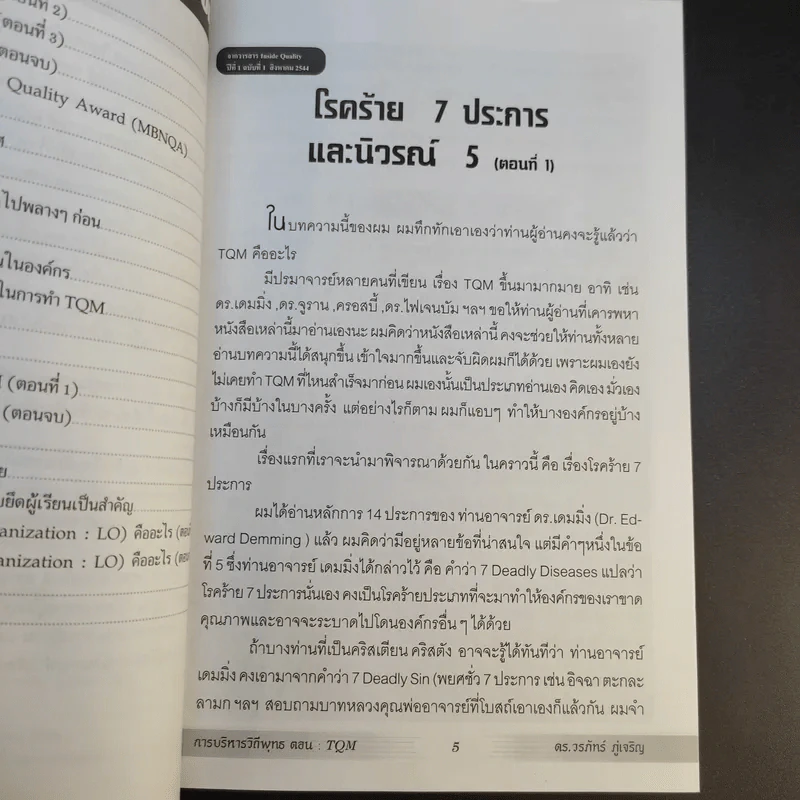 อนที่ 2)
ตอนที่ 3)
ตอนจบ)
Quality Award (MBNQA)
ไปพลางๆ ก่อน
นในองค์กร
ในการทำ TQM
(ตอนที่ 1)
(ตอนจบ)
ยึดผู้เรียนเป็นสำคัญ
anization : LO) คืออะไร
anization : LO) คืออะไร
จากวารสาร Inside Quality
ปีที่ 1 ฉบับที่ 1 สิงหาคม 2544
โรคร้าย 7 ประการ
และนิวรณ์ 5 (ตอนที่ 1)
ในบทความนี้ของผม ผมทึกทักเอาเองว่าท่านผู้อ่านคงจะรู้แล้วว่า
TQM คืออะไร
มีปรมาจารย์หลายคนที่เขียน เรื่อง TQM ขึ้นมามากมาย อาทิ เช่น
ดร.เดมมิ่ง ,ดร.จูราน ,ครอสบี้ ,ดร.ไฟเจนบัม ฯลฯ ขอให้ท่านผู้อ่านที่เคารพหา
หนังสือเหล่านี้มาอ่านเองนะ ผมคิดว่าหนังสือเหล่านี้ คงจะช่วยให้ท่านทั้งหลาย
อ่านบทความนี้ได้สนุกขึ้น เข้าใจมากขึ้นและจับผิดผมก็ได้ด้วย เพราะผมเองยัง
ไม่เคยทำ TQM ที่ไหนสำเร็จมาก่อน ผมเองนั้นเป็นประเภทอ่านเอง คิดเอง มั่วเอง
บ้างก็มีบ้างในบางครั้ง แต่อย่างไรก็ตาม ผมก็แอบๆ ทำให้บางองค์กรอยู่บ้าง
เหมือนกัน
เรื่องแรกที่เราจะนำมาพิจารณาด้วยกัน ในคราวนี้ คือ เรื่องโรคร้าย 7
ประการ
ผมได้อ่านหลักการ 14 ประการของ ท่านอาจารย์ ดร.เดมมิ่ง (Dr. Ed-
ward Demming ) แล้ว ผมคิดว่ามีอยู่หลายข้อที่น่าสนใจ แต่มีคำๆหนึ่งในข้อ
ที่ 5 ซึ่งท่านอาจารย์ เดมมิ่งได้กล่าวไว้ คือ คำว่า 7 Deadly Diseases แปลว่า
โรคร้าย 7 ประการนั่นเอง คงเป็นโรคร้ายประเภทที่จะมาทำให้องค์กรของเราขาด
คุณภาพและอาจจะระบาดไปโดนองค์กรอื่น ๆ ได้ด้วย
ถ้าบางท่านที่เป็นคริสเตียน คริสตัง อาจจะรู้ได้ทันทีว่า ท่านอาจารย์
เดมมิ่ง คงเอามาจากคำว่า 7 Deadly Sin (พยศชั่ว 7 ประการ เช่น อิจฉา ตะกละ
ลามก ฯลฯ สอบถามบาทหลวงคุณพ่ออาจารย์ที่โบสถ์เอาเองก็แล้วกัน ผมจำ
การบริหารวิถีพุทธ ตอน : TQM 5 ดร.วรภัทร์ ภู่เจริญ